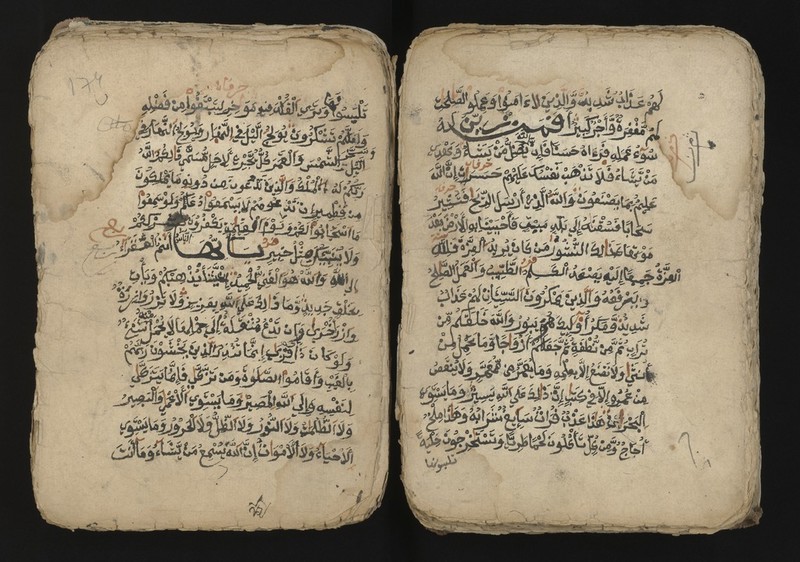 لهم عذاب شديد والذين ءامنوا وعملوا الصلحت
لهم مغفرة وأجر كبير أفمن زين له
سوء عمله فرءاه حسنا فإن الله يضل من يشاء ويهدى
من يشاء فلا تذهب نفسك عليهم حسرات إن الله
عليم بما يصنعون والله الذى أرسل الريح فتثير
سحابا فسقنه إلى بلد ميت فأحيينا به الأرض بعد
موتها كذلك النشور من كان يريد العزة فلله
العزة جميعا إليه يصعد الكلم الطيب والعمل الصلح
يرفعه والذين يمكرون السيئات لهم عذاب
شديد ومكر أولئك هو يبور والله خلقكم من
تراب ثم من نطفة ثم جعلكم أزواجا وما تحمل من
أنثى ولا تضع إلا بعلمه وما يعمر من معمر ولا ينقص
من عمره إلا فى كتب إن ذلك على الله يسير وما يستوى
البحران هذا عذب فرات سائغ شرابه وهذا ملح
أجاج ومن كل تأكلون لحما طريا وتستخرجون حلية
تلبسونها
تلبسونها وترى الفلك فيه مواخر لتبتغوا من فضله
ولعلكم تشكرون يولج اليل فى النهار ويولج النهار فى
اليل وسخر الشمس والقمر كل يجرى لأجل مسمى ذلكم الله
ربكم له الملك والذين تدعون من دونه ما يملكون
من قطمير إن تدعوهم لا يسمعوا دعاءكم ولو سمعوا
ما استجابوا لكم ويوم القيمة يكفرون بشرككم
ولا ينبئك مثل خبير يأيها الناس أنتم الفقراء
إلى الله والله هو الغنى الحميد إن يشأ يذهبكم ويأت
بخلق جديد وما ذلك على الله بعزيز ولا تزر وازرة
وزر أخرى وإن تدع مثقلة إلى حملها لا يحمل منه شىء
ولو كان ذا قربى إنما تنذر الذين يخشون ربهم
بالغيب وأقاموا الصلوة ومن تزكى فإنما يتزكى
لنفسه وإلى الله المصير وما يستوى الأعمى والبصير
ولا الظلمت ولا النور ولا الظل ولا الحرور وما يستوى
الأحياء ولا الأموات إن الله يسمع من يشاء وما أنت